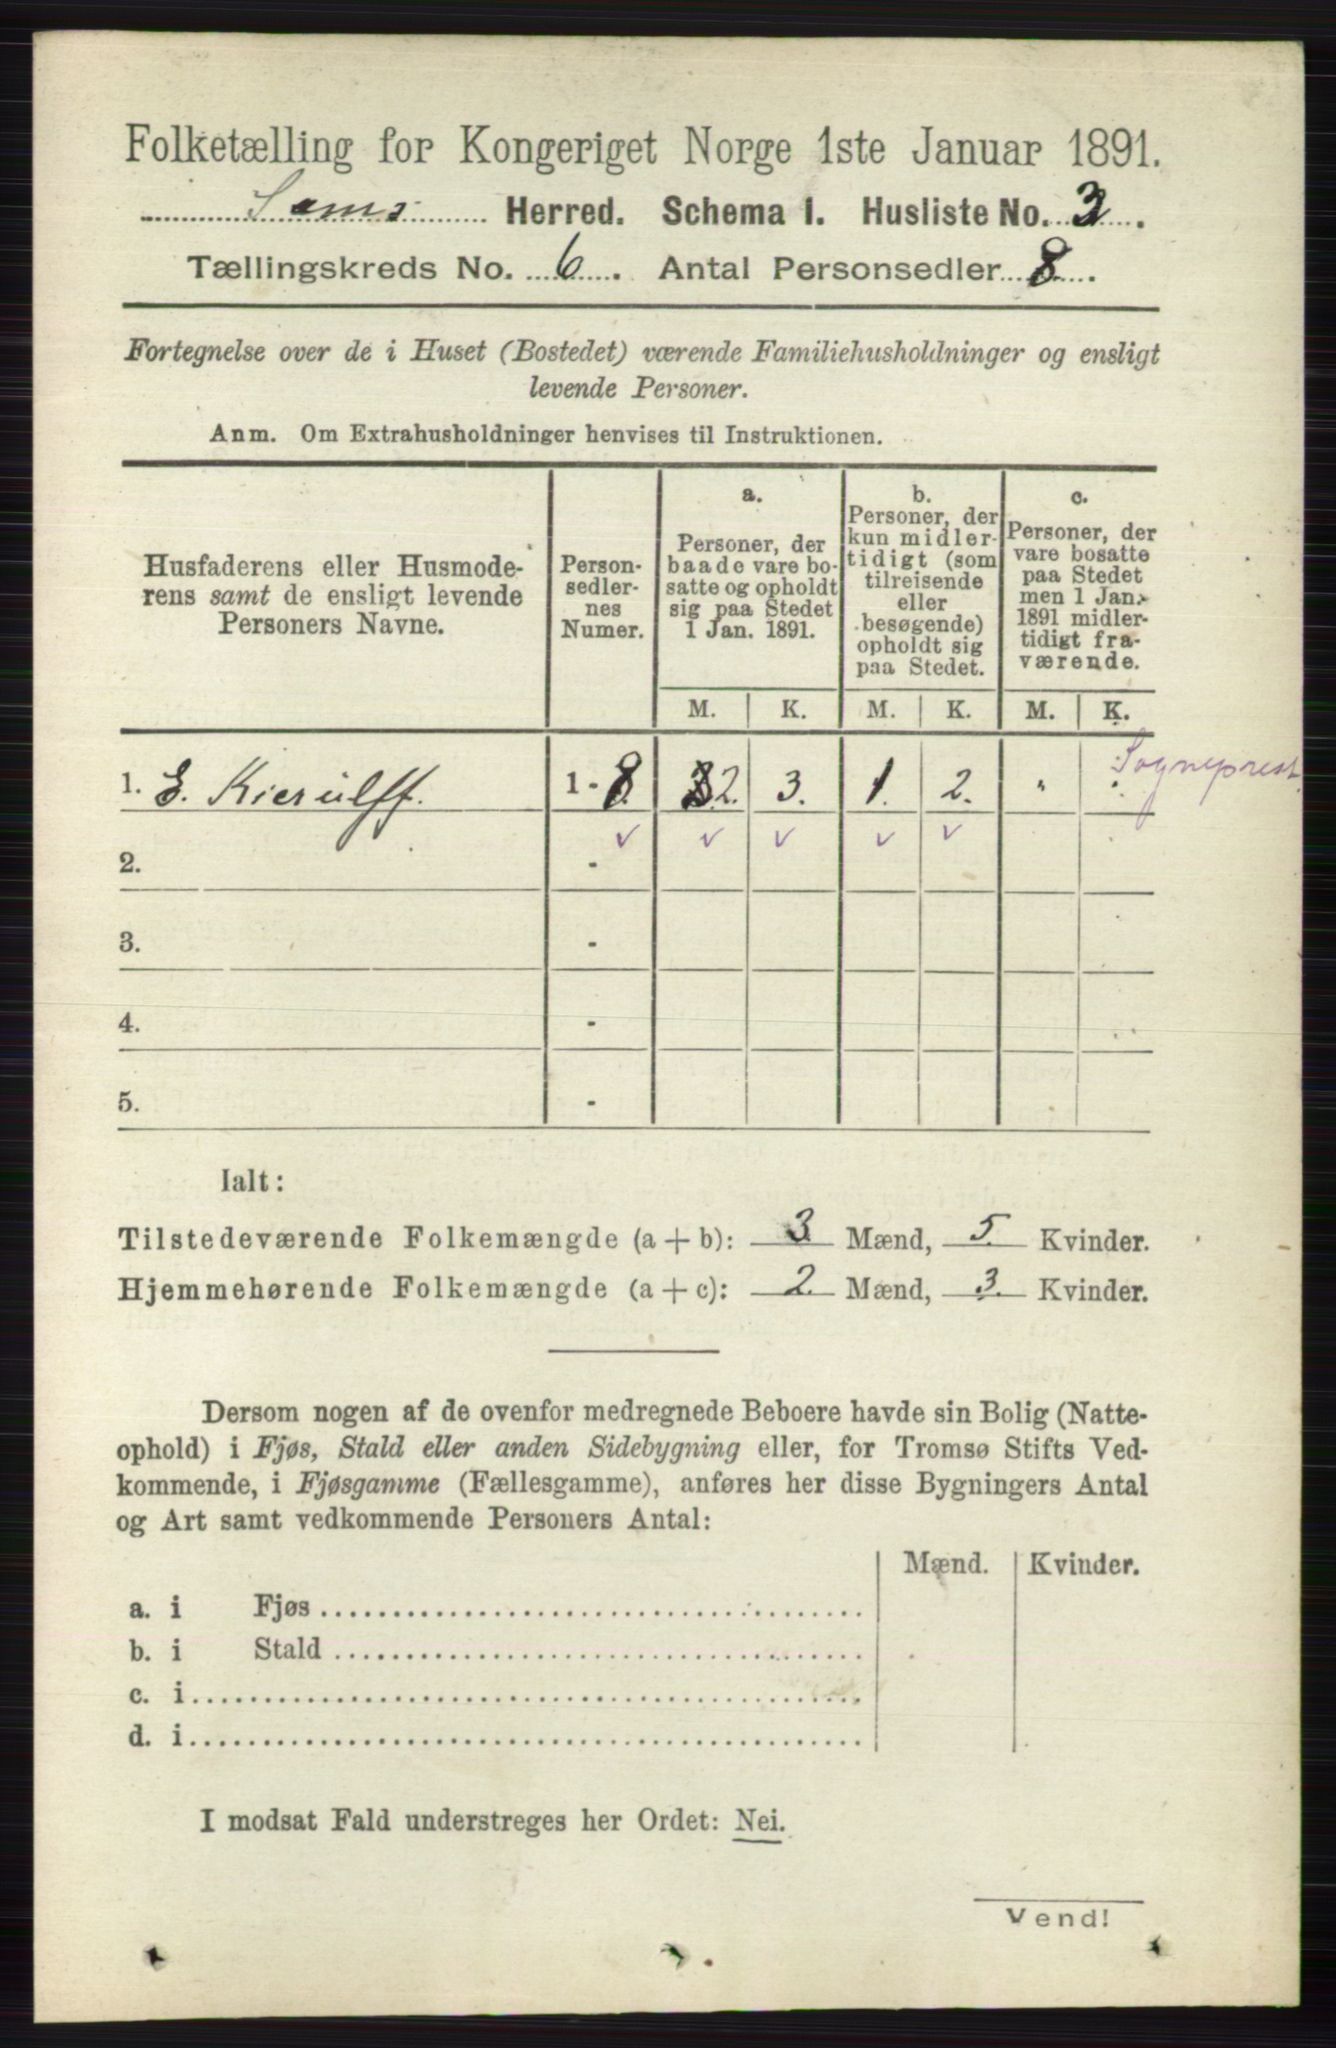 Folketælling for Kongeriget Norge 1ste Januar 1891.
Sems Herred. Schema I. Husliste No. 3.
Tællingskreds No. 6. Antal Personsedler 8.
Fortegnelse over de i Huset (Bostedet) værende Familiehusholdninger og ensligt
levende Personer.
Anm. Om Extrahusholdninger henvises til Instruktionen.
Husfaderens eller Husmode-
rens samt de ensligt levende
Personers Navne.
Person-
sedler-
nes
Numer.
a.
Personer, der
baade vare bo-
satte og opholdt
sig paa Stedet
1 Jan. 1891.
b.
Personer, der
kun midler-
tidigt (som
tilreisende
eller
besøgende)
opholdt sig
paa Stedet.
c.
Personer, der
vare bosatte
paa Stedet
men 1 Jan.
1891 midler-
tidigt fra-
værende.
M. K. M. K. M. K.
Sogneprest
1. E. Kierulff. 1 - 8. 2. 3. 1. 2. " "
2. -
3. -
4. -
5. -
Ialt:
Tilstedeværende Folkemængde (a + b): 3. Mænd, 5. Kvinder.
Hjemmehørende Folkemængde (a + c): 2. Mænd, 3. Kvinder.
Dersom nogen af de ovenfor medregnede Beboere havde sin Bolig (Natte-
ophold) i Fjøs, Stald eller anden Sidebygning eller, for Tromsø Stifts Ved-
kommende, i Fjøsgamme (Fællesgamme), anføres her disse Bygningers Antal
og Art samt vedkommende Personers Antal:
Mænd. Kvinder.
a. i Fjøs
b. i Stald
c. i
d. i
I modsat Fald understreges her Ordet: Nei.
Vend!